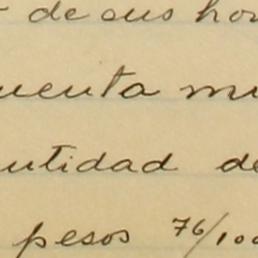 de sus hon
uenta mi
antidad de
pesos 76/100